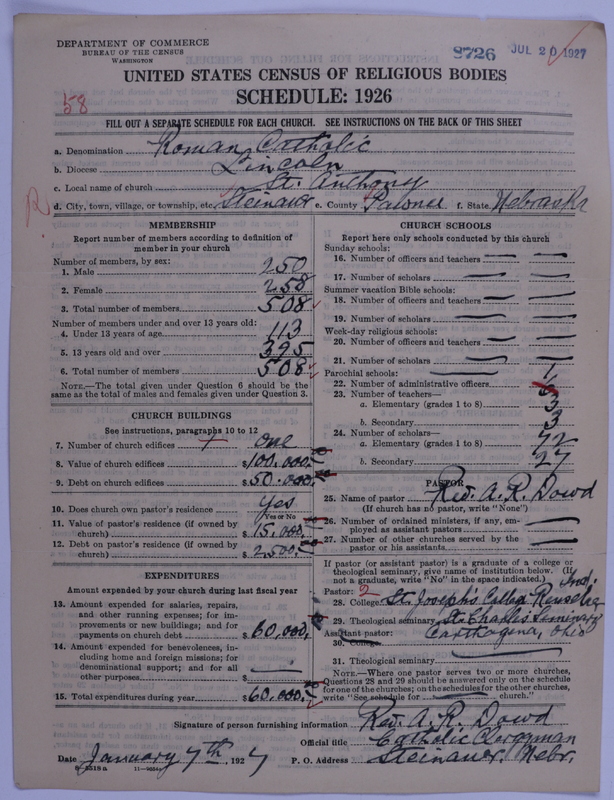 DEPARTMENT OF COMMERCE
BUREAU OF THE CENSUS
WASHINGTON
8726 JUL 20 1927
UNITED STATES CENSUS OF RELIGIOUS BODIES
58
SCHEDULE: 1926
FILL OUT A SEPARATE SCHEDULE FOR EACH CHURCH. SEE INSTRUCTIONS ON THE BACK OF THIS SHEET
a. Denomination Roman Catholic
b. Diocese Lincoln
c. Local name of church St. Anthony
R d. City, town, village, or township, etc. Steinauer e. County Pawnee f. State Nebraska
MEMBERSHIP
Report number of members according to definition of
member in your church
Number of members, by sex:
1. Male 250
2. Female 258
3. Total number of members 508
Number of members under and over 13 years old:
4. Under 13 years of age 113
5. 13 years old and over 395
6. Total number of members 508
NOTE.—The total given under Question 6 should be
same as the total of males and females given under Question 3.
CHURCH BUILDINGS
See instructions, paragraphs 10 to 12
7. Number of church edifices one
8. Value of church edifices $100,000.
9. Debt on church edifices $50,000.
10. Does church own pastor's residence? Yes
Yes or No
11. Value of pastor's residence (if owned by
church) $15,000.
12. Debt on pastor's residence (if owned by
church) $2500.
EXPENDITURES
Amount expended by your church during last fiscal year
13. Amount expended for salaries, repairs,
and other running expenses; for im-
provements or new buildings; and for
payments on church debt $60,000.
14. Amount expended for benevolences, in-
cluding home and foreign missions; for
denominational support; and for all
other purposes $
15. Total expenditures during year $60,000.
CHURCH SCHOOLS
Report here only schools conducted by this church
Sunday schools:
16. Number of officers and teachers
17. Number of scholars
Summer vacation Bible schools:
18. Number of officers and teachers
19. Number of scholars
Week-day religious schools:
20. Number of officers and teachers
21. Number of scholars
Parochial schools:
22. Number of administrative officers
23. Number of teachers—
a. Elementary (grades 1 to 8) 3
b. Secondary 3
24. Number of scholars—
a. Elementary (grades 1 to 8) 72
b. Secondary 27
PASTOR
25. Name of pastor Rev. A. R. Dowd
(If church has no pastor, write "None")
26. Number of ordained ministers, if any, em-
ployed as assistant pastors
27. Number of other churches served by the
pastor or his assistants
If pastor (or assistant pastor) is a graduate of a college or
theological seminary, give name of institution below. (If
not a graduate, write "No" in the space indicated.)
Pastor: 2 Ind.
28. College St. Joseph's College
29. Theological seminary St. Charles Seminary
Assistant pastor: Carthagena, Ohio
30. College
31. Theological seminary
NOTE.—Where one pastor serves two or more churches,
Questions 28 and 29 should be answered only on the schedule
for one of the churches; on the schedules for the other churches,
write "See schedule for church.
Signature of person furnishing information Rev. A. R. Dowd
Official title Catholic Clergyman
Date January 7th, 1927 P. O. Address Steinauer. Nebr.